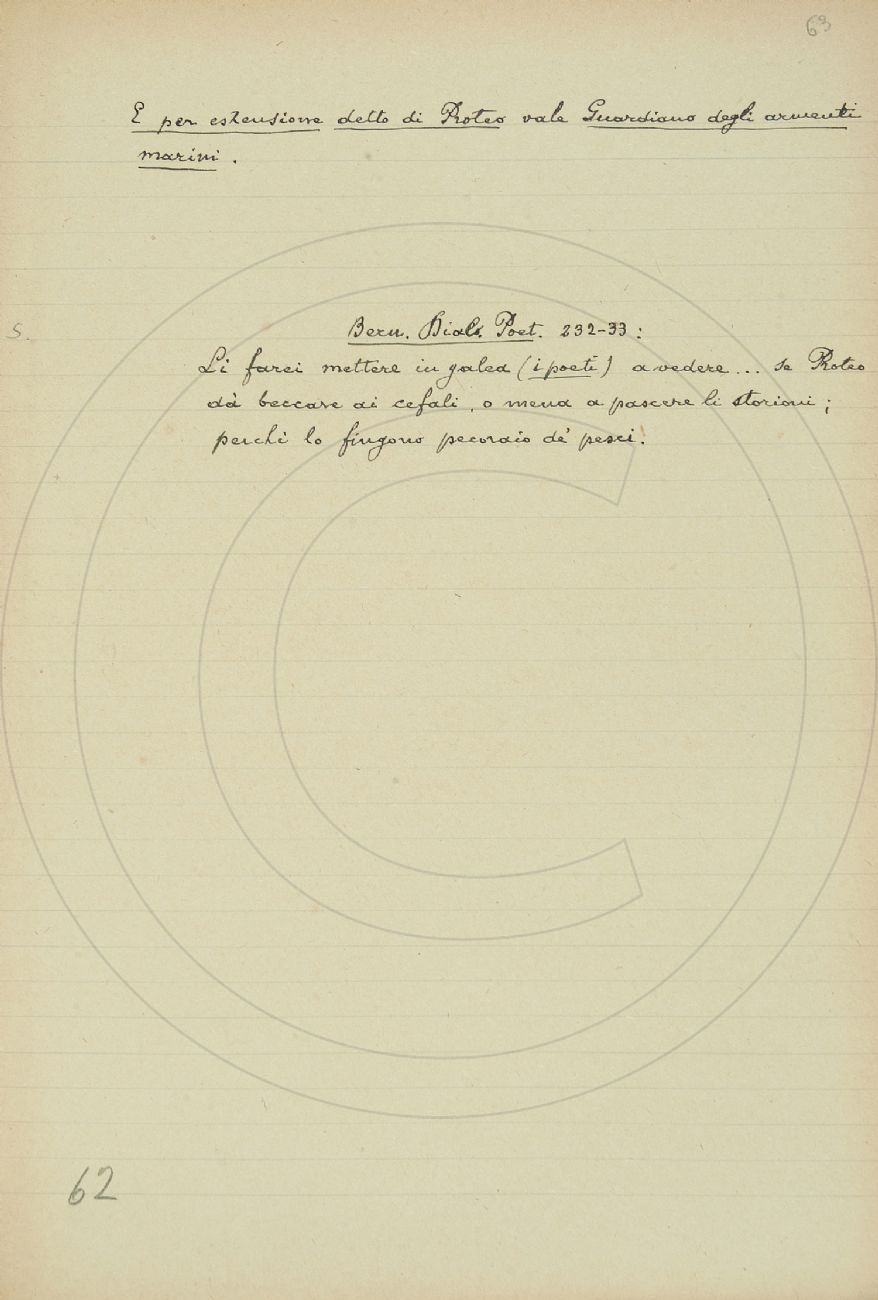 63
E per estensione detto di Proteo vale Guardiano degli armenti
marini.
S.
Bern. Dial. Poet. 232-33:
Li farei mettere in galea (i poeti) a vedere... se Proteo
dà beccare ai cefali, o mena a pascere li storioni;
perchè lo fingono pecoraio de' pesci.
62